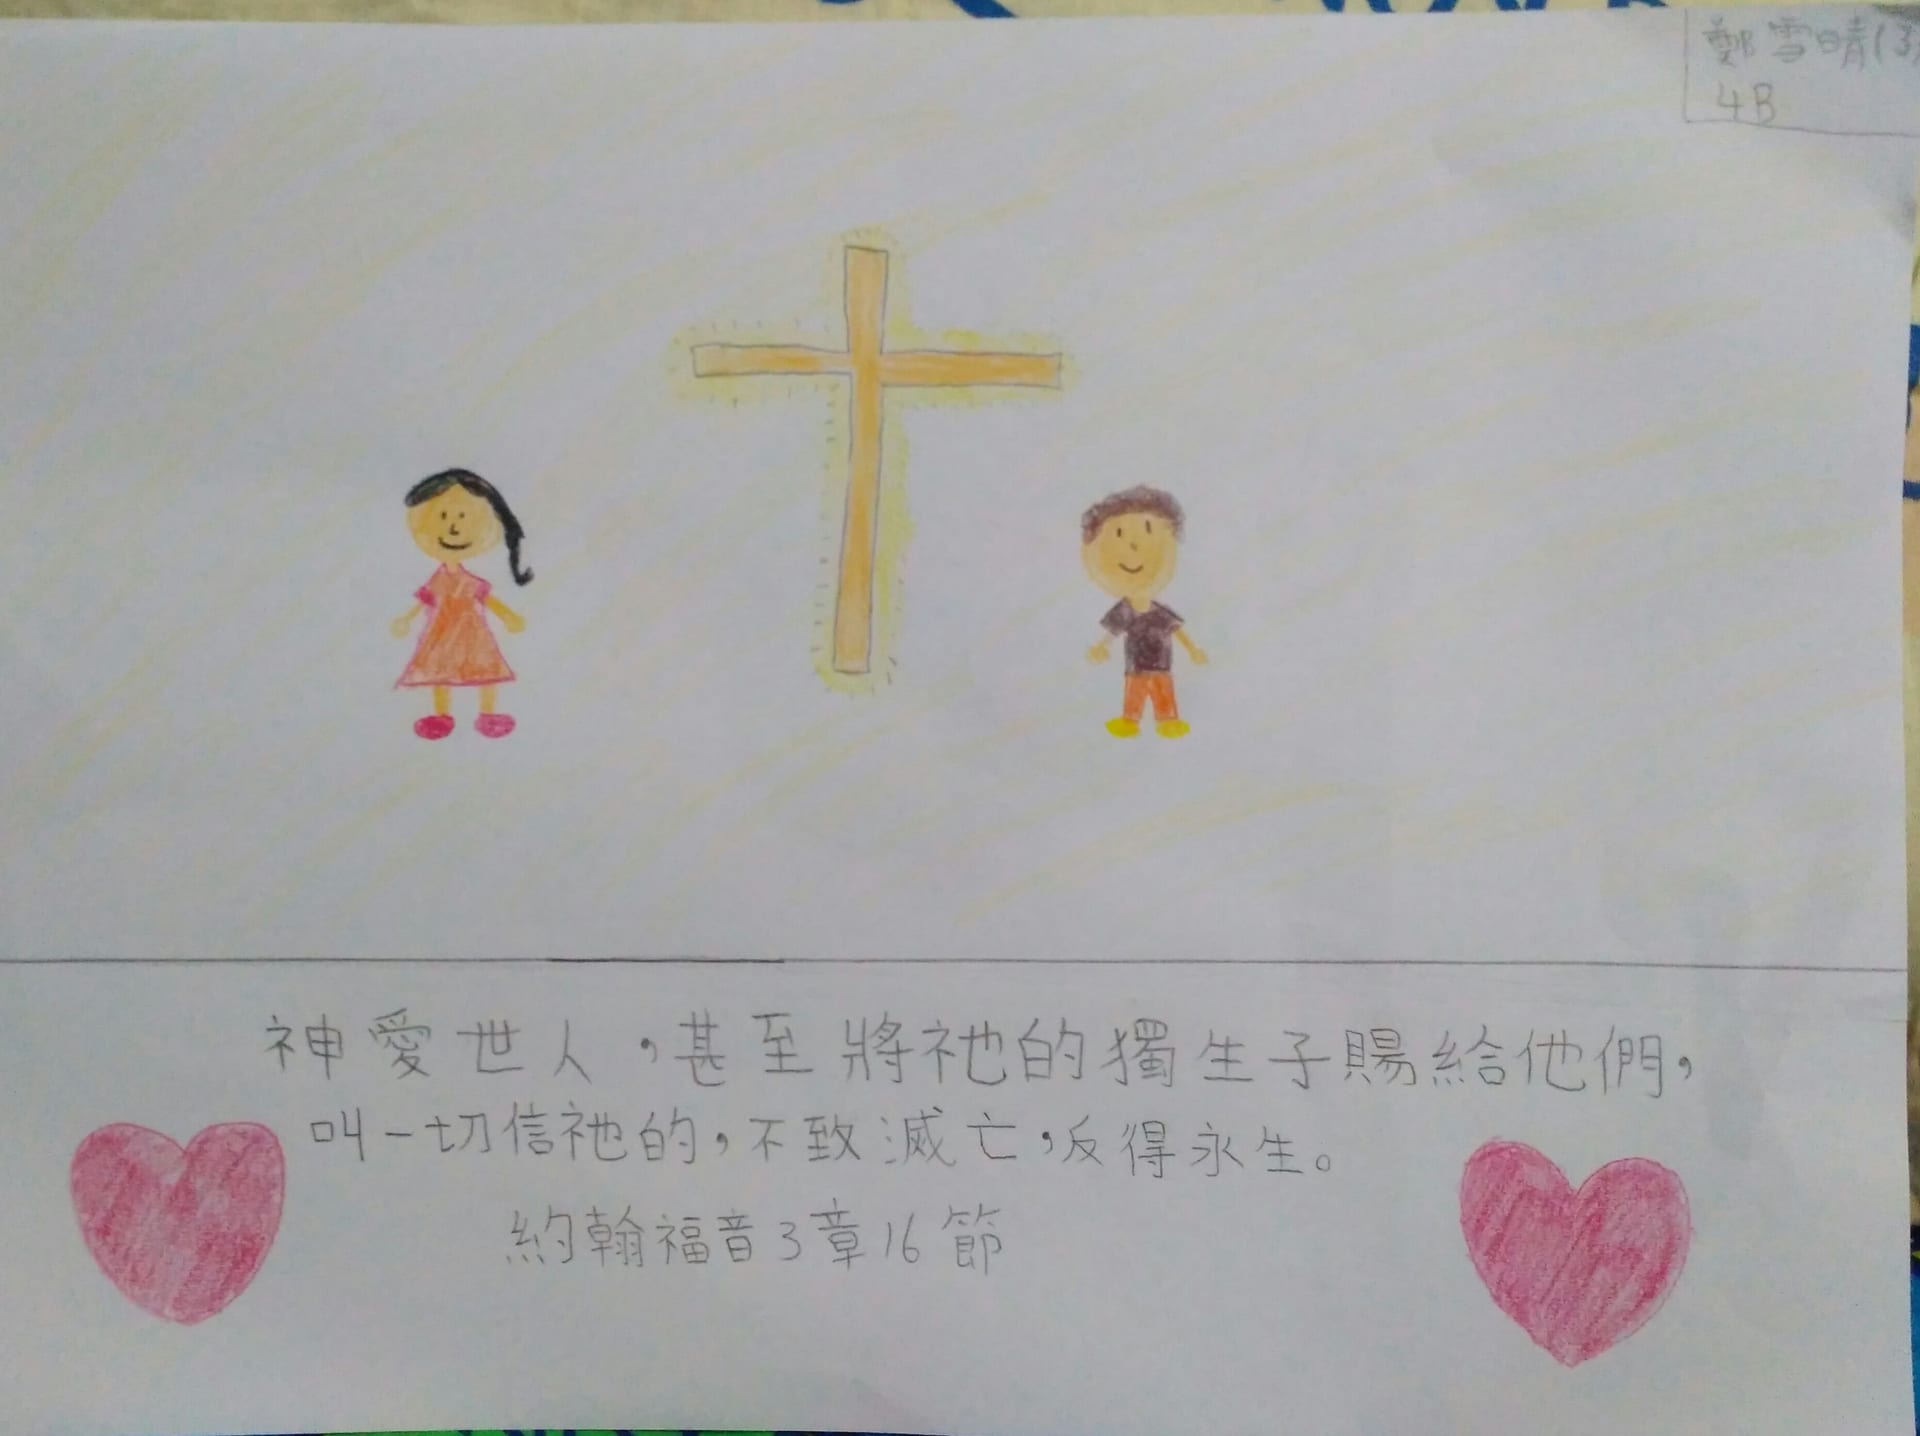 鄭雪晴(3)
4B
神愛世人，甚至將祂的獨生子賜給他們，
叫一切信祂的，不致滅亡，反得永生。
約翰福音3章16節